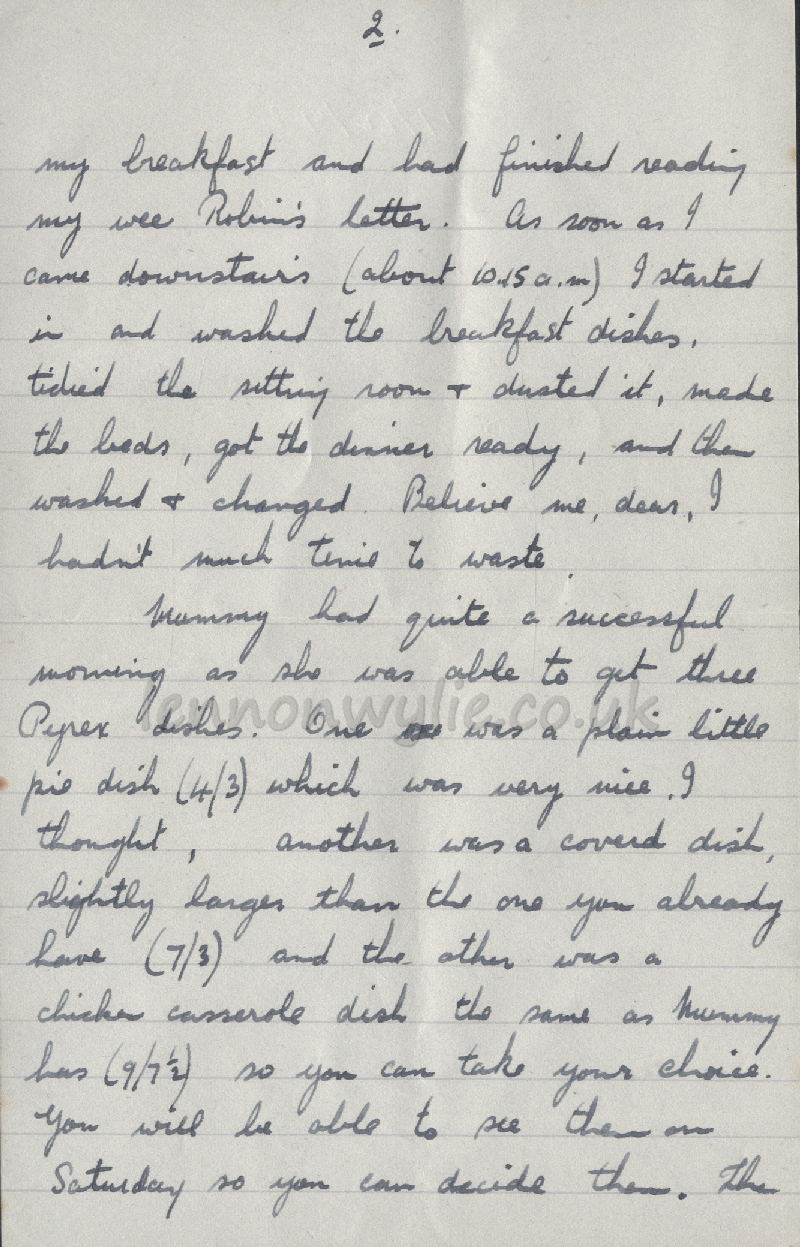 2.
my breakfast and had finished reading
my wee Robin's letter. As soon as I
came downstairs (about 10.15 a.m) I started
in and washed the breakfast dishes,
tidied the sitting room + dusted it, made
the beds, got the dinner ready, and then
washed + changed. Believe me, dear, I
hadn't much time to waste.
Mummy had quite a successful
morning as she was able to get three
lennonwylie.co.uk
Pyrex dishes. One was a plain little
pie dish (4/3) which was very nice, I
thought, another was a coverd dish,
slightly larger than the one you already
have (7/3) and the other was a
chicken casserole dish the same as Mummy
has (9/7½) so you can take your choice.
You will be able to see them on
Saturday so you can decide then. The